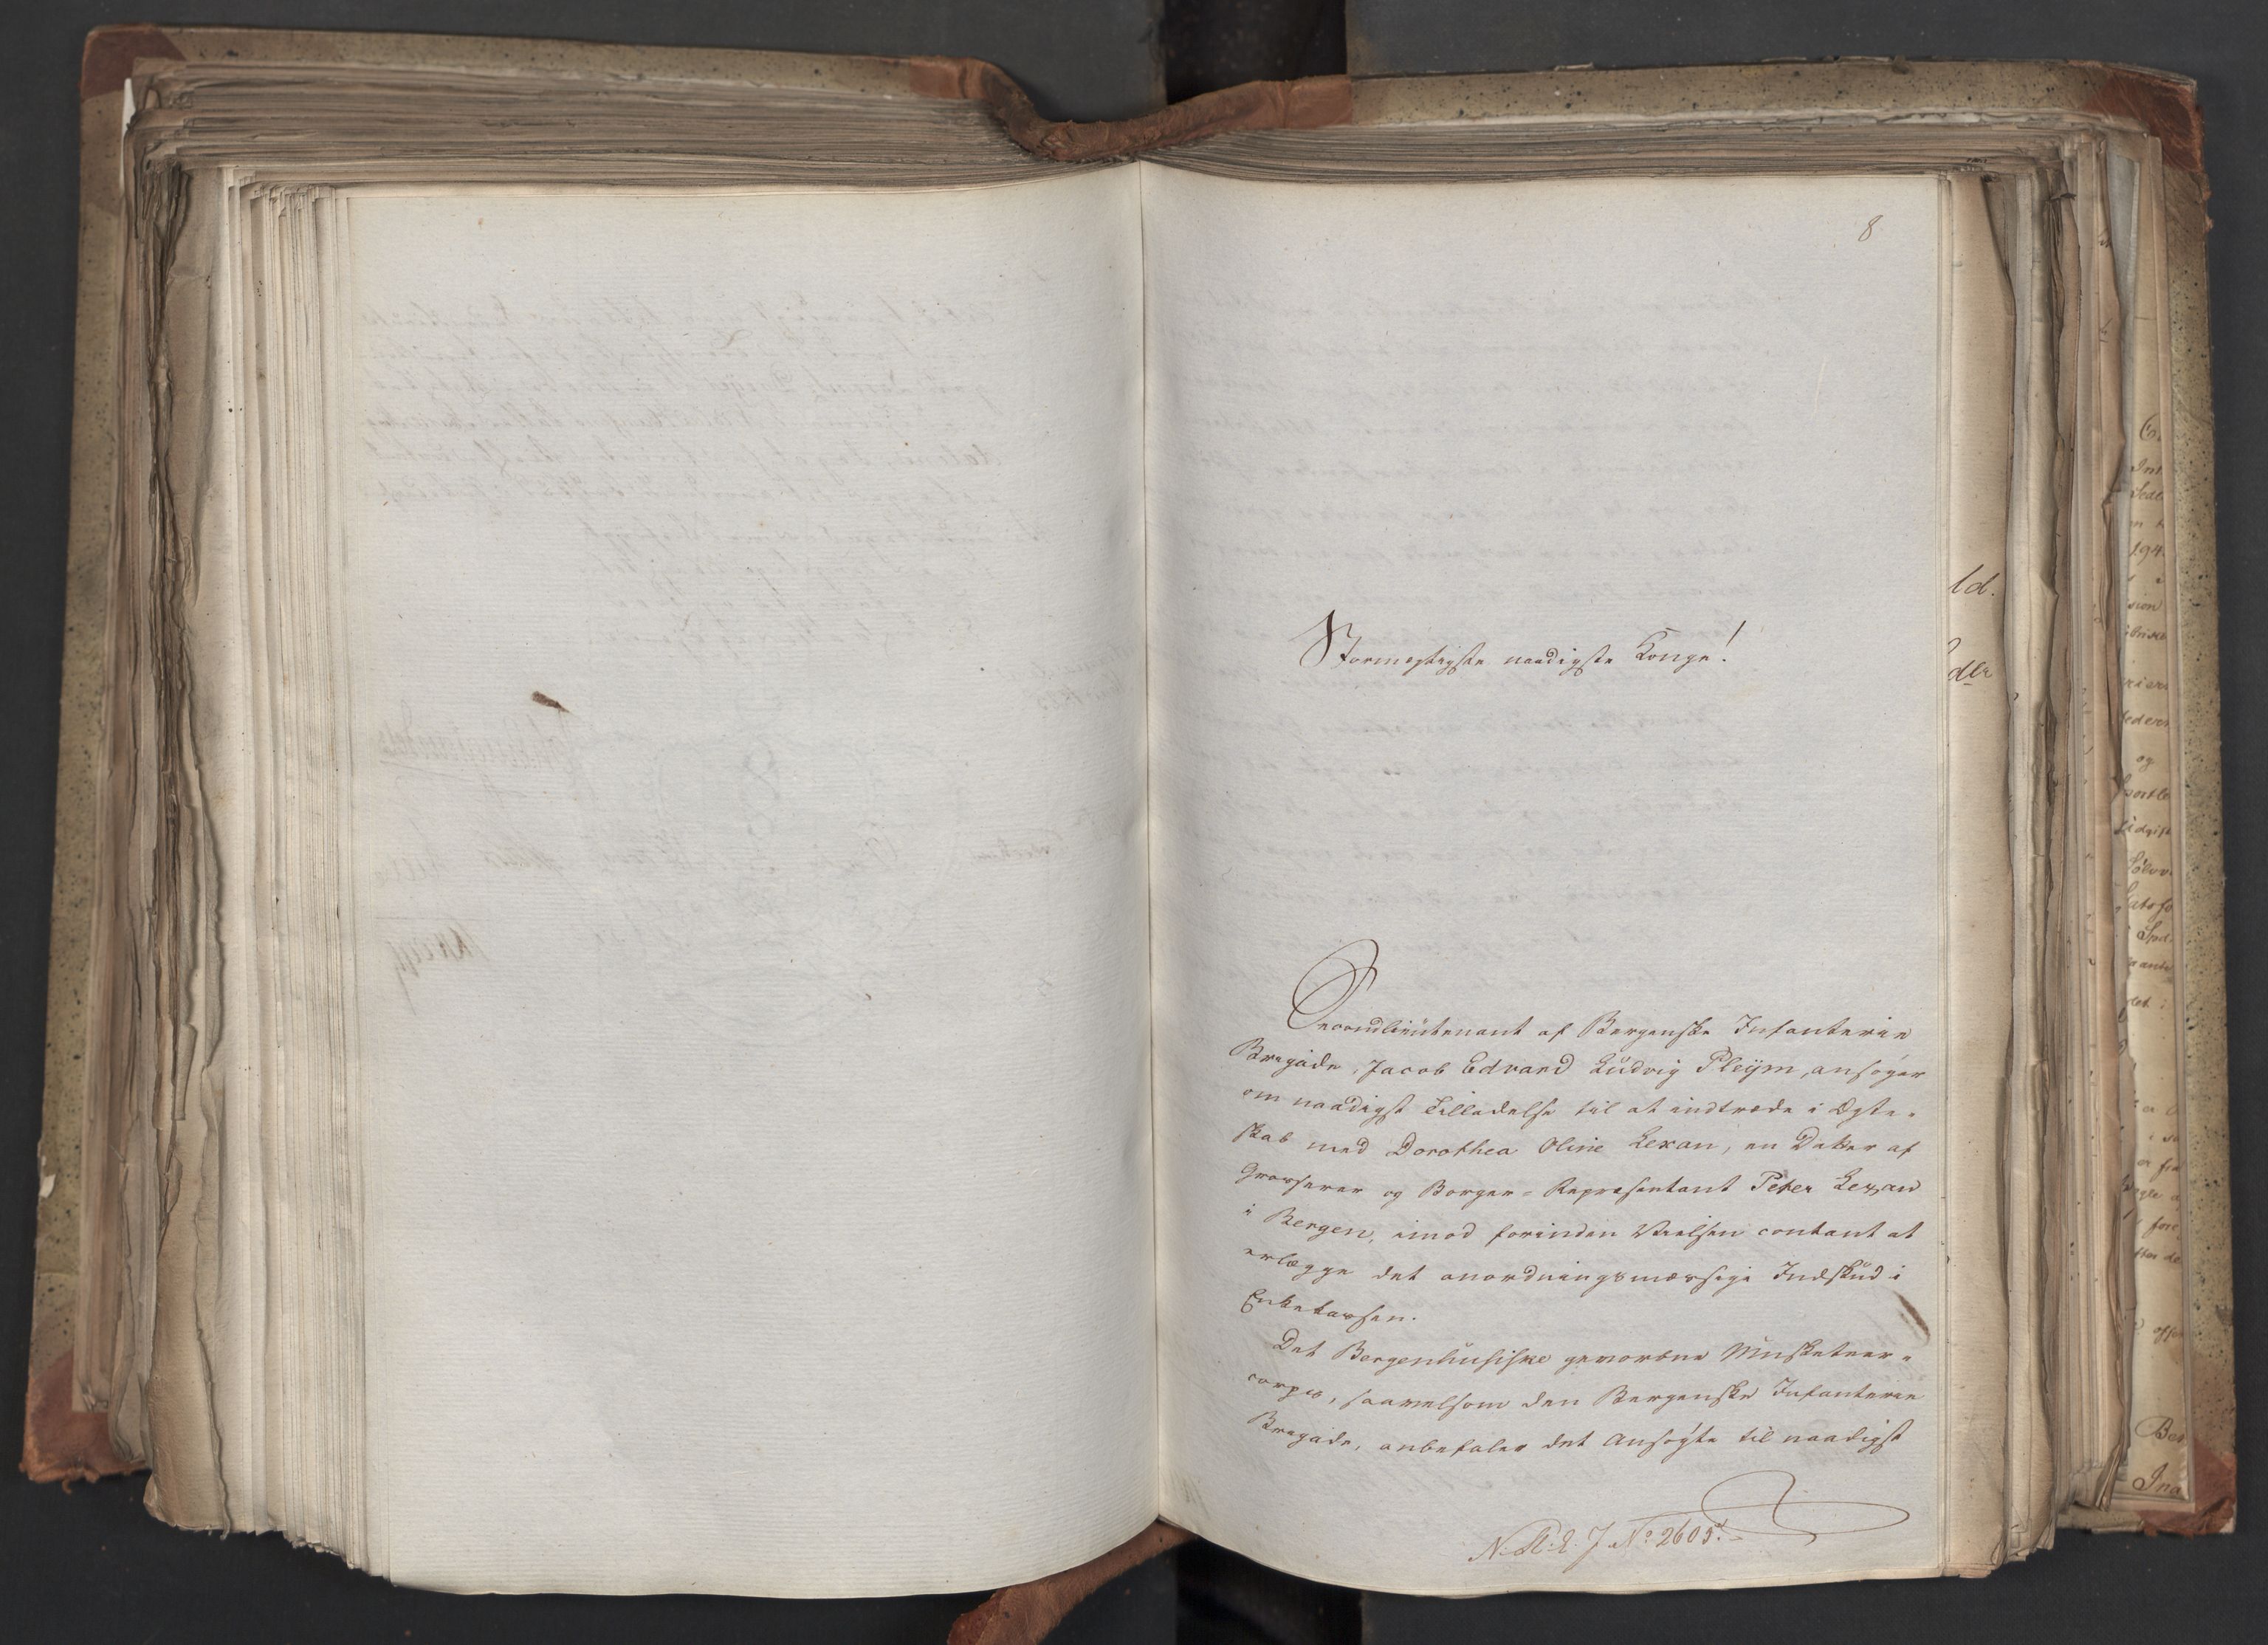 8
Stormægtigste naadigste Konge!
Secondlieutenant af Bergenske Infanterie
Bregade, Jacob Edvard Ludvig Pleÿm, ansøger
om naadigst Tilladelse til at indtræde i Ægte-
skab med Dorothea Oline Lexau, en Datter af
Grosserer og Borger-Repræsentant Peter Lexau
i Bergen, imod forinden Vielsen contant at
erlægge det anordningsmæssige Indskud i
Enkekassen.
Det Bergenhusiske gevorbne Musketeer-
corps, saavelsom den Bergenske Infanterie
Bregade, anbefaler det Ansøgte til naadigst
N: R: L: J. No. 2605.
ld.